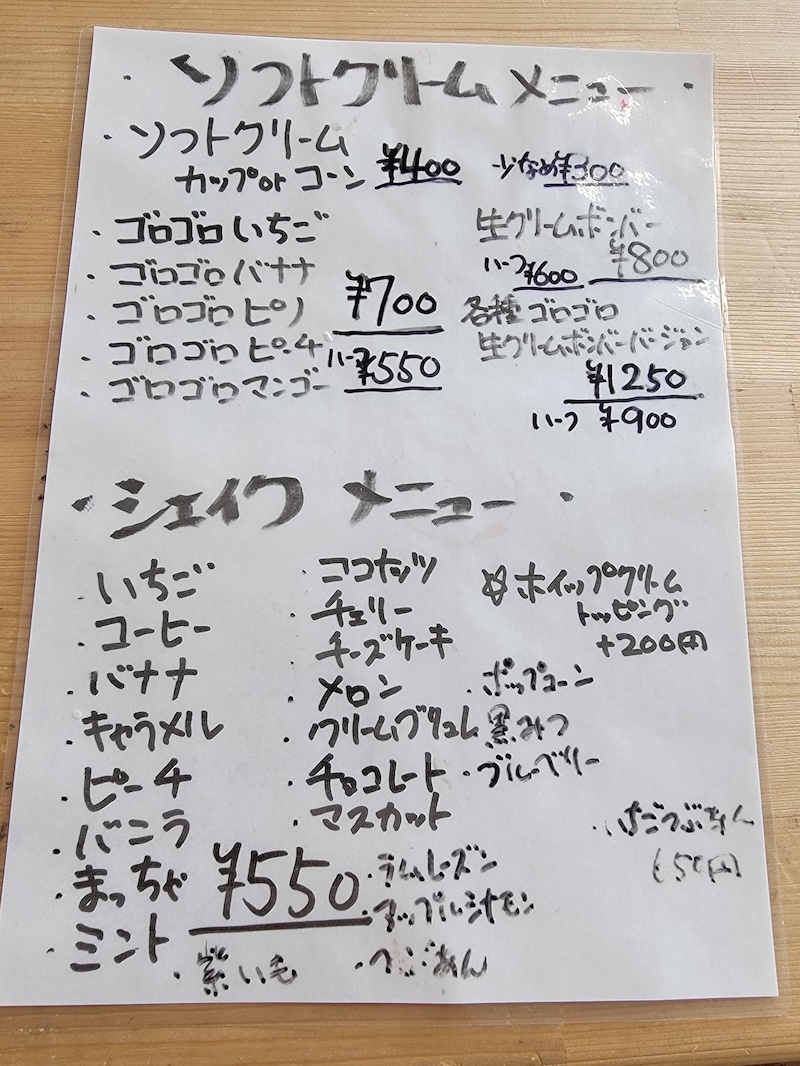 ・ソフトクリームメニュー・
・ソフトクリーム
カップorコーン ¥400 少なめ¥300
・ゴロゴロいちご
・ゴロゴロバナナ
・ゴロゴロピノ
・ゴロゴロピーチ
・ゴロゴロマンゴー
¥700
ハーフ¥550
生クリームボンバー
¥800
ハーフ¥600
各種ゴロゴロ
生クリームボンバーバージョン
¥1250
ハーフ ¥900
・シェイクメニュー・
・いちご
・コーヒー
・バナナ
・キャラメル
・ピーチ
・バニラ
・まっちゃ
・ミント
・紫いも
¥550
・ココナッツ
・チェリー
・チーズケーキ
・メロン
・クリームブリュレ
・チョコレート
・マスカット
・ラムレーズン
・アップルシナモン
☆ホイップクリーム
トッピング
+200円
・ポップコーン
・黒みつ
・ブルーベリー